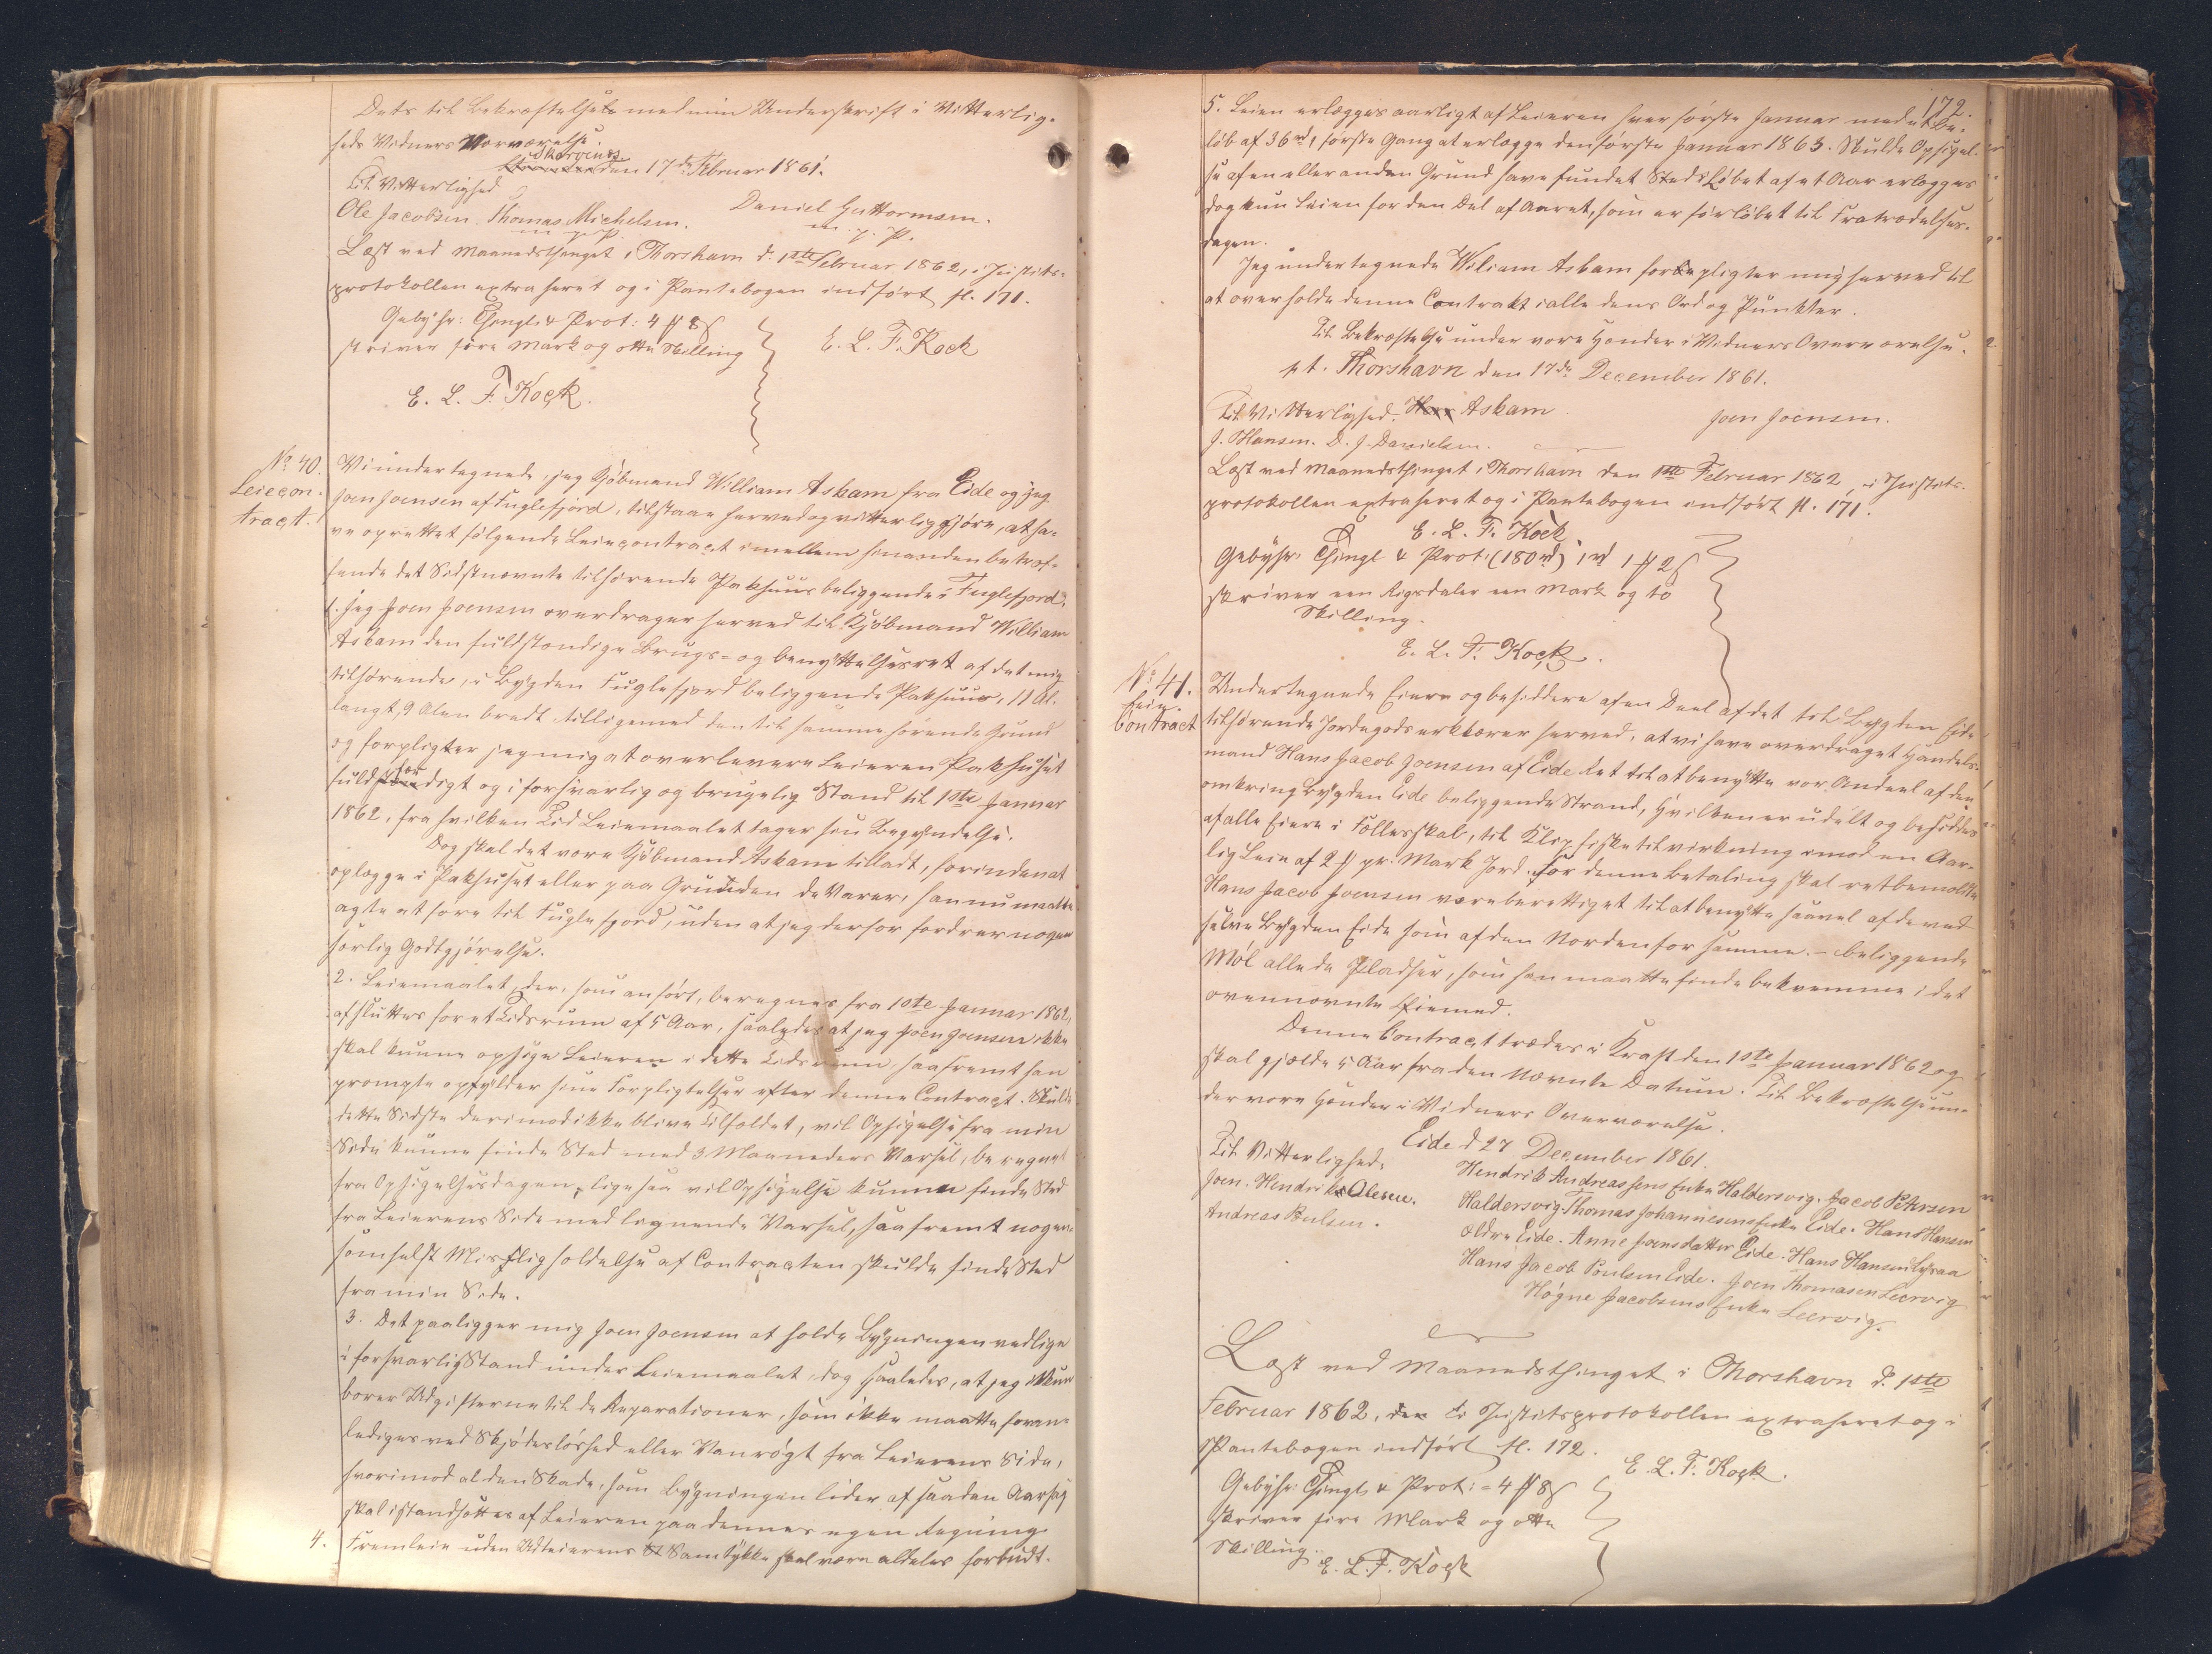 Dets til Bekræftelse med min Underskrift i Vitterlig-
heds Vidners Nærværelse.
Skaapnæs den 17de Februar 1861.
Til Vitterlighed
Ole Jacobsen Thomas Michelsen. Daniel Guttormsen.
m. p. P. m. p. P.
Læst ved Maanedsthinget i Thorshavn d. 1ste Februar 1862, i Justits-
protokollen extraheret og i Pantebogen indført fl. 171.
Gebyhr: Thingl & Prot: 4 ℔ 8 ß
skriver fire Mark og otte Skilling
E. L. F. Kock
E. L. F. Kock.
No. 40.
Leiecon-
tract.
Vi undertegnede, jeg Kjøbmand William Askam fra Eide og jeg
Joen Joensen af Fuglefjord, tilstaae herved og vitterliggjøre, at ha-
ve oprettet følgende Leiecontract imellem hinanden betræf-
fende det Sidstnævnte tilhørende Pakhuus beliggende i Fuglefjord:
1. Jeg Joen Joensen overdrager herved til Kjøbmand William
Askam den fuldstændige Brugs- og Benyttelsesret af det mig
tilhørende, i Bygden Fuglefjord beliggende Pakhuus, 11 Al.
langt, 9 Alen bredt tilligemed den til samme hørende Grund
og forpligter jeg mig at overlevere Leieren Pakhuset
fuldfærdigt og i forsvarlig og brugelig Stand til 1ste Januar
1862, fra hvilken Tid Leiemaalet tager sin Begyndelse.
Dog skal det være Kjøbmand Askam tilladt, forinden at
oplægge i Pakhuset eller paa Grunden de Varer, han nu maatte
agte at føre til Fuglefjord, uden at jeg derfor fordrer nogen
særlig Godtgjørelse.
2. Leiemaalet, der, som anført, beregnes fra 1ste Januar 1862,
afsluttes for et Tidsrum af 5 Aar, saaledes at jeg Joen Joensen ikke
skal kunne opsige Leieren i dette Tidsrum saafremt han
prompte opfylder sine Forpligtelser efter denne Contract. Skulde
dette Sidste derimod ikke blive Tilfældet, vil Opsigelse fra min
Side kunne finde Sted med 3 Maaneders Varsel, beregnet
fra Opsigelsesdagen, ligesaa vil Opsigelse kunne finde Sted
fra Leierens Side med lignende Varsel, saafremt nogen-
somhelst Misligholdelse af Contracten skulde finde Sted
fra min Side.
3. Det paaligger mig Joen Joensen at holde Bygningen vedlige
i forsvarlig Stand under Leiemaalet, dog saaledes, at jeg ikkun
bærer Udgifterne til de Reparationer, som ikke maatte foran-
lediges ved Skjødesløshed eller Vanrøgt fra Leierens Side,
hvorimod al den Skade, som Bygningen lider af saadan Aarsag
skal istandsættes af Leieren paa dennes egen Regning.
4. Fremleie uden Udleierens Samtykke skal være aldeles forbudt.
172.
5. Leien erlægges aarligt af Leieren hver første Januar med et Be-
løb af 36 rd, første Gang at erlægge den første Januar 1863. Skulde Opsigel-
se af en eller anden Grund have fundet Sted i Løbet af et Aar erlægges
dog kun Leien for den Del af Aaret, som er forløbet til Fratrædelses-
dagen.
Jeg undertegnede Wiliam Askam forpligter mig herved til
at overholde denne Contrakt i alle dens Ord og Punkter.
Til Bekræftelse under vore Hænder i Vidners Overværelse.
pt. Thorshavn den 17de December 1861.
Til Vitterlighed. Askam Joen Joensen.
J. Hansen. D. J. Danielsen.
Læst ved Maanedsthinget i Thorshavn den 1ste Februar 1862, i Justits-
protokollen extraheret og i Pantebogen indført fl. 171.
E. L. F. Kock
Gebyhr: Thingl & Prot: (180 rd) 1 rd 1 ℔ 2 ß
skriver een Rigsdaler een Mark og to
Skilling.
E. L. F. Kock.
No. 41.
Leie-
Contract
Undertegnede Eiere og besiddere af en Deel af det til Bygden Eide
tilhørende Jordegods erklærer herved, at vi have overdraget Handels-
mand Hans Jacob Joensen af Eide Ret til at benytte vor Andeel af den
omkring Bygden Eide beliggende Strand, hvilken er udelt og besiddes
af alle Eiere i Fællesskab, til Klipfisketilvirkning imod en Aar-
lig Leie af 2 ß pr. Mark Jord. For denne Betaling skal retbemeldte
Hans Jacob Joensen være berettiget til at benytte saavel af de ved
selve Bygden Eide som af den Nordenfor samme. - beliggende
Möl alle de Pladser, som han maatte finde bekvemme i det
ovennævnte Øiemed.
Denne Contract træder i Kraft den 1ste Januar 1862 og
skal gjælde 5 Aar fra den Nævnte Datum. Til Bekræftelse un-
der vore Hænder i Vidners Overværelse.
Eide d 27 December 1861.
Til Vitterlighed.
Joen. Hendrik Olesen.
Andreas Poulsen.
Hendrik Andreassens Enke Haldersvig. Jacob Petersen
Haldersvig. Thomas Johannesens Enke Eide. Hans Hansen
ældre Eide. Anne Joensdatter Eide. Hans Hansen
Hans Jacob Poulsen Eide. Joen Thomasen Leervig
Høgne Jacobsens Enke Leervig.
Læst ved Maanedsthinget i Thorshavn d. 1ste
Februar 1862, i Justitsprotokollen extraheret og i
Pantebogen indført fl. 172.
E. L. F. Kock.
Gebyhr: Thingl & Prot: = 4 ℔ 8 ß
skriver fire Mark og otte
Skilling.
E. L. F. Kock